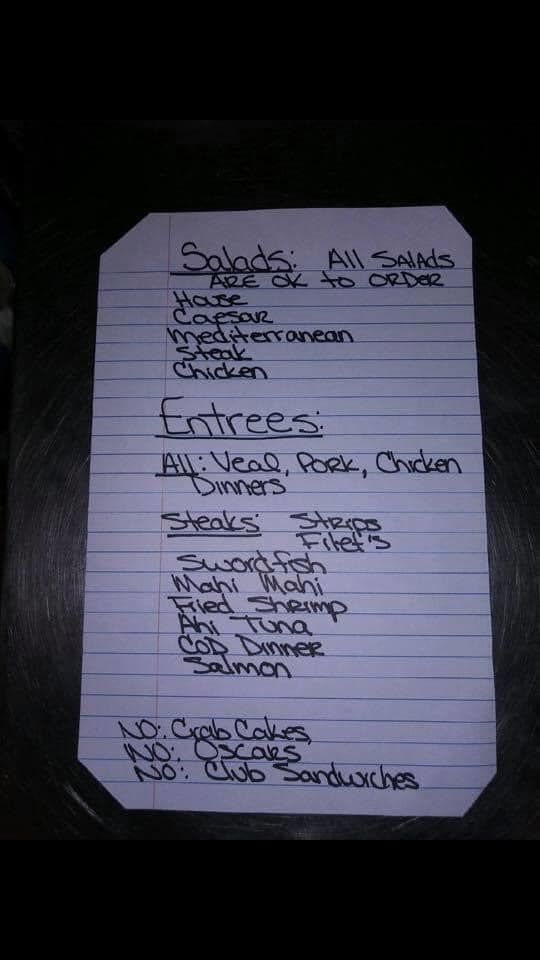 Salads: All SALAds
ARE OK to ORDER
House
Caesar
Mediterranean
Steak
Chicken
Entrees:
All: Veal, PORK, Chicken
Dinners
Steaks: Strips
Filet's
Swordfish
Mahi Mahi
Fried Shrimp
Ahi Tuna
COD Dinner
Salmon
NO: Crab Cakes
NO: Oscars
NO: Club Sandwiches